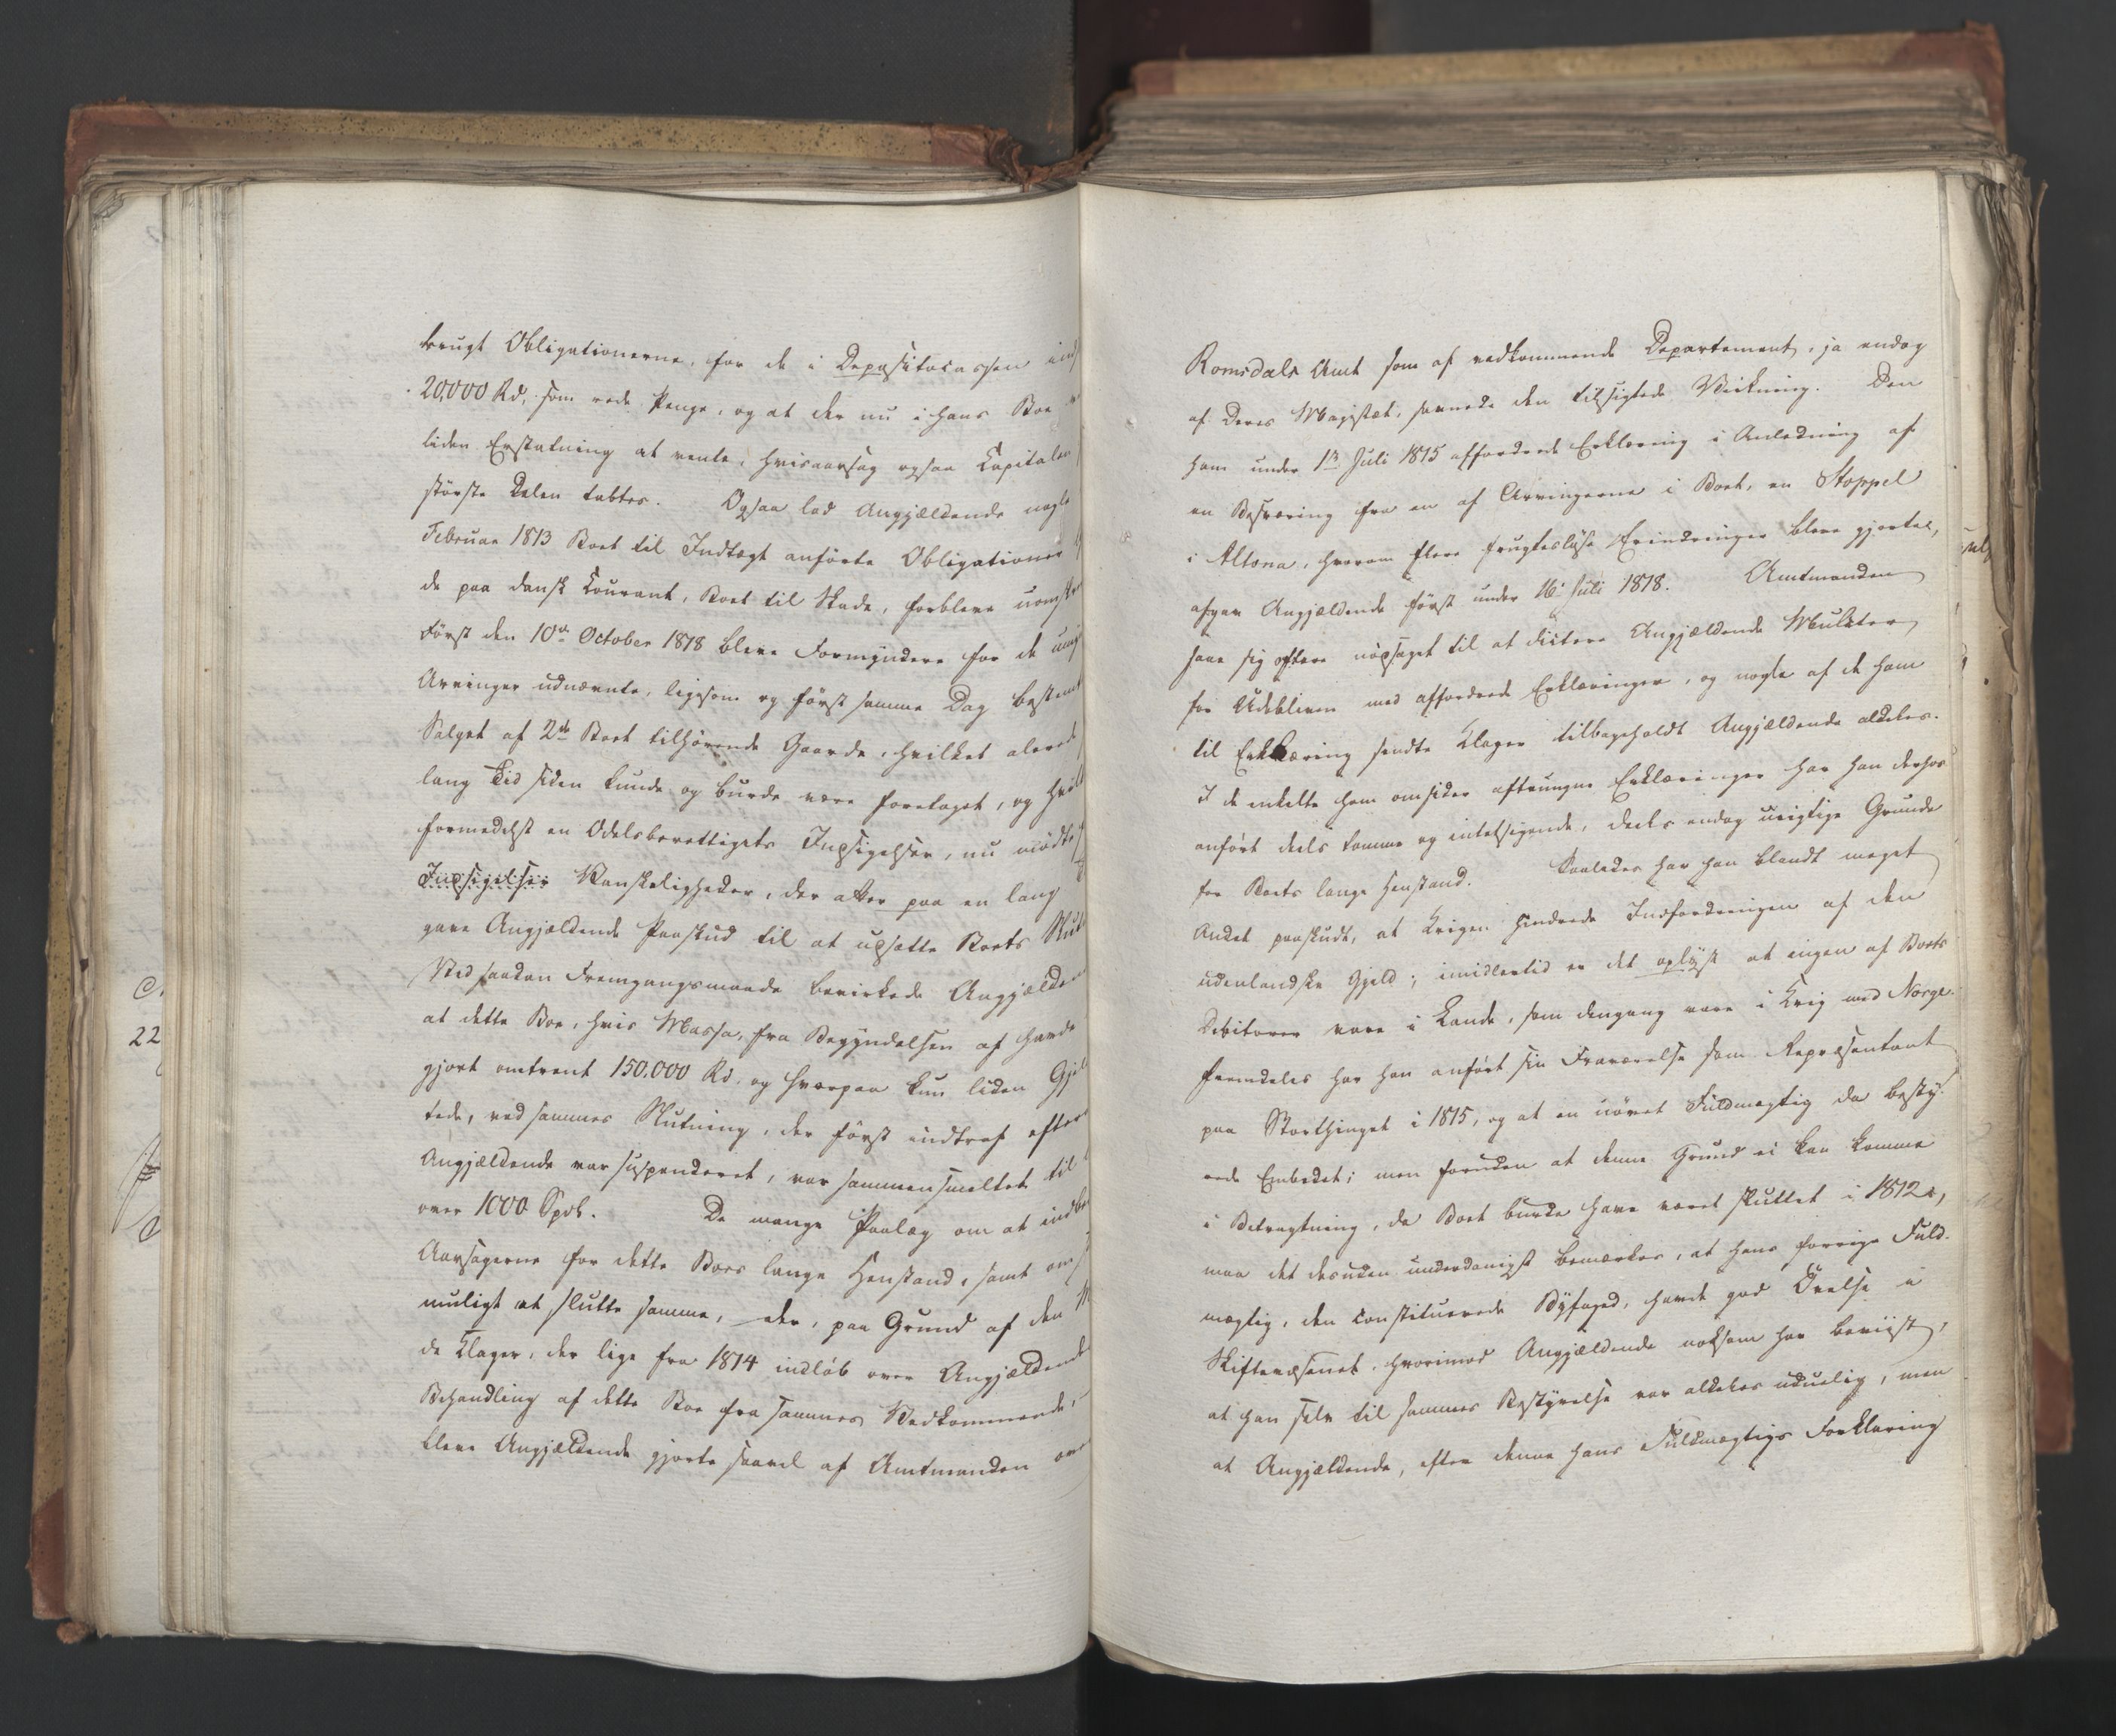 brugt Obligationerne, for de i Depositocassen ind
20,000 Rd, som rede Penge, og at der nu i hans Boe
liden Erstatning at vente, hvisaarsag ogsaa Capitalen
største Delen tabtes. Ogsaa lod Angjældende nogle
Februar 1813 Boet til Indtægt anførte Obligationer
de paa dansk Courant, Boet til Skade, forblive uomskre
Først den 10de October 1818 bleve Formyndere for de umy
Arvinger udnævnte, ligesom og først samme Dag bestemt
Salget af 2de Boet tilhørende Gaarde, hvilket alerede
lang Tid siden kunde og burde være foretaget, og hvilk
formedelst en Odelsberettigets Indsigelser, nu mødte
Indsigelser Vanskeligheder, der atter paa en lang
gave Angjældende Paaskud til at udsætte Boets Slut
Ved saadan Fremgangsmaade bevirkede Angjælden
at dette Boe, hvis Massa, fra Begyndelsen af havde
gjort omtrent 150,000 Rd. og hvorpaa kun liden Gjel
tede, ved sammes Slutning, der først indtraf efter
Angjældende var suspenderet, var sammensmeltet til
over 1000 Spd. De mange Paalæg om at indbe
Aarsagerne for dette Boes lange Henstand, samt om
muligt at slutte samme, der, paa Grund af den
de Klager, der lige fra 1814 indløb over Angjældende
Behandling af dette Boe fra sammes Vedkommende,
bleve Angjældende gjorte saavel af Amtmanden over
Romsdals Amt som af vedkommende Departement, ja endog
af Deres Majestæt, savnede den tilsigtede Virkning. Den
ham under 1ste Juli 1815 affordrede Erklæring i Anledning af
en Besværing fra en af Arvingerne i Boet, en Stoppel
i Altona, hvorom flere frugtesløse Erindringer bleve gjorte,
afgav Angjældende først under 16. Juli 1818. Amtmanden
saae sig oftere nødsaget til at dictere Angjældende Mulkter
for Udebliven med affordrede Erklæringer, og nogle af de ham
til Erklæring sendte Klager tilbageholdt Angjældende aldeles.
I de enkelte ham omsider aftvungne Erklæringer har han derhos
anført deels tomme og intetsigende, deels endog urigtige Grunde
for Boets lange Henstand. Saaledes har han blandt meget
Andet paaskudt, at Krigen hindrede Inddfordringen af den
udenlandske Gjeld; imidlertid er det oplyst at ingen af Boets
Debitorer vare i Lande, som dengang vare i Krig med Norge.
Fremdeles har han anført sin Fraværelse som Repræsentant
paa Storthinget i 1815, og at en uøvet Fuldmægtig da besty-
rede Embedet; men foruden at denne Grund ei kan komme
i Betragtning, da Boet burde have været sluttet i 1812,
maa det desuden underdanigst bemærkes, at hans forrige Fuld-
mægtig, den constituerede Byfoged, havde god Øvelse i
Skiftevæsenet, hvorimod Angjældende noksom har beviist,
at han selv til sammes Bestyrelse var aldeles uduelig, men
at Angjældende, efter denne hans Fuldmægtigs Forklaring